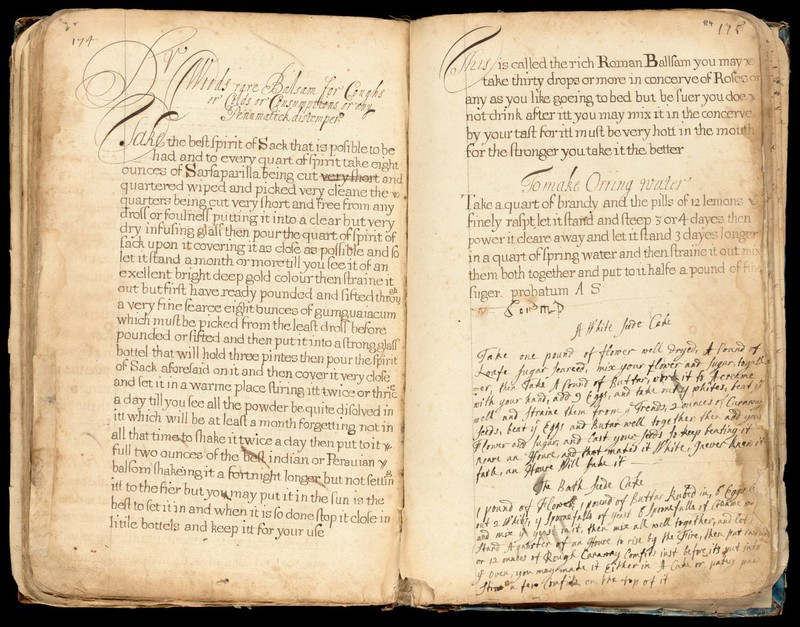 174
Dr Winds rare Balsam for Coughs
or Colds or Consumptions or any
Pnnumatick distemper
Take the best spirit of Sack that is posible to be
had and to every quart of spirit take eight
ounces of Sarsaparilla being cut very short and
quartered wiped and picked very cleane the
quarters being cut very short and free from any
dross or foulness putting it into a clear but very
dry infusing glass then pour the quart of spirit of
sack upon it covering it as close as possible and so
let it stand a month or more till you see it of an
exellent bright deep gold colour then straine it
out but first have ready pounded and sifted throu
gh
a very fine searce eight ounces of gumguaiacum
which must be picked from the least dross before
pounded or sifted and then put it into a strong glass
bottel that will hold three pintes then pour the spirit
of Sack aforesaid on it and then cover it very close
and set it in a warme place stiring itt twice or thrice
a day till you see all the powder be quite disolved in
itt which will be at least a month forgetting not in
all that time to shake it twice a day then put to it
full two ounces of the best indian or Peruvian
balsom shakeing it a fortnight longer but not setting
itt to the fier but you may put it in the sun is the
best to set it in and when it is so done stop it close in
little bottels and keep itt for your use
175
This is called the rich Roman Ballsam you may
take thirty drops or more in concerve of Roses or
any as you like goeing to bed but be suer you doe
not drink after itt you may mix it in the concerve
by your tast for itt must be very hott in the mouth
for the stronger you take it the better
To make Orring water
Take a quart of brandy and the pills of 12 lemons
finely raspt let it stand and steep 3 or 4 dayes then
power it cleare away and let it stand 3 dayes longer
in a quart of spring water and then straine it out mix
them both together and put to it halfe a pound of fine
suger. probatum A S
A White Seede Cake
Take one pound of flower well dryed, A Pound of
Loafe sugar searced, mix your flower and sugar togeth
er, then Take A Pound of Buttar, work it to A creame
with your hand, add 9 Eggs, and take out whites, beat
well and straine them from Treads, 2 ounces of Caraway
seeds, beat Eggs and Butar well together then add your
Flower and sugar, and Cast your seeds keep beating it
neare an Houre, and that makes it White, never knew it
faile, an Houre Will bake it
The Bath Seede Cake
1 pound of Flower, 1 pound of Buttar Rubed in, 8 Eggs
out 2 Whits, 4 spoonefulls of yeast 8 spoonefulls of Creame
and mix yeast in it, then mix all well together, and let
stand A quarter of an Houre to rise by the Fire, then put
or 12 ounces of Rough Caraway Comfits just before its put into
Oven, you may make it Either in A Cake or pates pans
Strow a few Comfits on the top of it